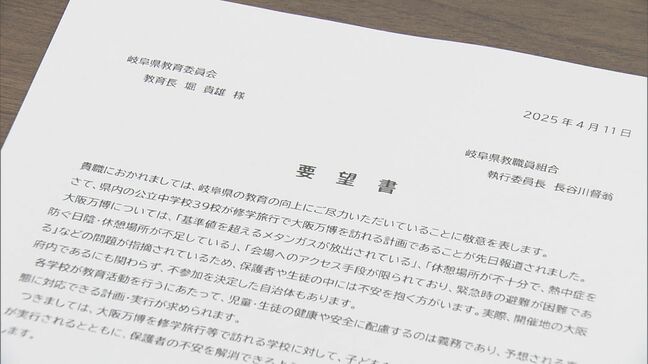 岐阜県教育委員会
教育長 堀 貴雄 様
2025年4月11日
岐阜県教職員組合
執行委員長 長谷川督翁
要望書
貴職におかれましては、岐阜県の教育の向上にご尽力いただいていることに敬意を表します。
さて、県内の公立中学校39校が修学旅行で大阪万博を訪れる計画であることが先日報道されました。
大阪万博については、「基準値を超えるメタンガスが放出されている」、「休憩場所が不十分で、熱中症を
防ぐ日陰・休憩場所が不足している」、「会場へのアクセス手段が限られており、緊急時の避難が困難であ
る」などの問題が指摘されているため、保護者や生徒の中には不安を抱く方がいます。実際、開催地の大阪
府内であるにも関わらず、不参加を決定した自治体もあります。
各学校が教育活動を行うにあたって、児童・生徒の健康や安全に配慮するのは義務であり、予想される
態に対応できる計画・実行が求められます。
つきましては、大阪万博を修学旅行等で訪れる学校に対して、子ども
が実行されるとともに、保護者の不安を解消できるよう
します。